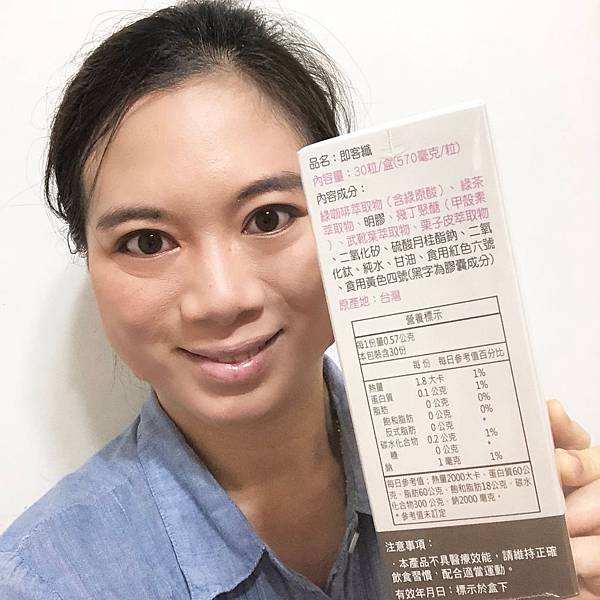 品名：即客纖
內容量：30粒/盒(570毫克/粒)
內容成分：
綠咖啡萃取物（含綠原酸）、綠茶
萃取物、明膠、幾丁聚醣（甲殼素
）、武靴葉萃取物、栗子皮萃取物
、二氧化矽、硫酸月桂酯鈉、二氧
化鈦、純水、甘油、食用紅色六號
、食用黃色四號(黑字為膠囊成分)
原產地：台灣
營養標示
每1份量0.57公克
本包裝含30份
每 份 每日參考值百分比
熱量 1.8 大卡 1%
蛋白質 0.1 公克 1%
脂肪 0 公克 0%
飽和脂肪 0 公克 0%
反式脂肪 0 公克 *
碳水化合物 0.2 公克 1%
糖 0 公克 *
鈉 1 毫克 1%
每日參考值：熱量2000大卡、蛋白質60公
克、脂肪60公克、飽和脂肪18公克、碳水
化合物300 公克、鈉2000 毫克。
* 參考值未訂定
注意事項：
．本產品不具醫療效能，請維持正確
飲食習慣，配合適當運動。
有效年月日：標示於盒下